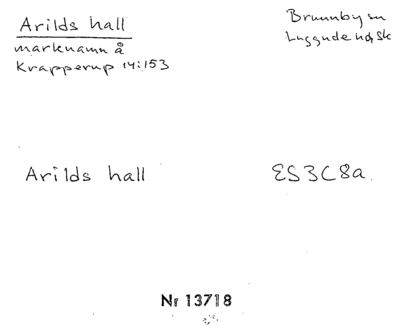 Arilds hall
Brunnby sn
marknamn å
Luggude hd Sk
Krapperup 14:153
Arilds hall
ES3C8a.
Nr 13718